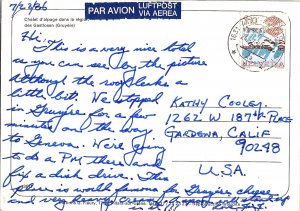 Chalet d'alpage dans la région
des Gastlosen (Gruyère)
PAR AVION
LUFTPOST
VIA AEREA
7/22/86
Hi,
This is a very nice hotel
as you can see by the picture
although the rug leaks a
little bit. We stopped
in Gruyère for a few
minutes on the way
to Geneva. We're going
to do a PM there and
fix a disk drive. This
place is world famous for Gruyère cheese
and very heavy cream
KATHY COOLEY
1262 W 187th PLACE
GARDENA, CALIF
90248
U.S.A.